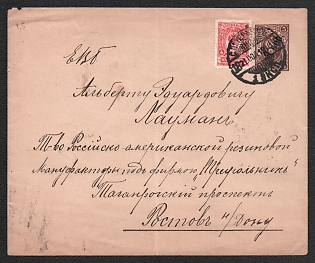 ЕВБ
Альберту Эдуардовичу
Науман
Т-во Россійско-американской резиновой
Мануфактуры подъ фирмою „Треугольникъ“
Таганрогскій проспектъ
Ростовъ н/Дону